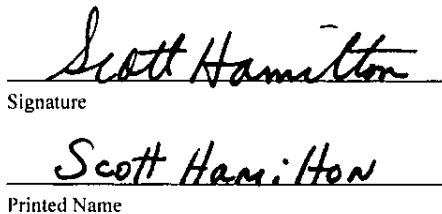 Scott Hamilton
Signature
Scott Hamilton
Printed Name